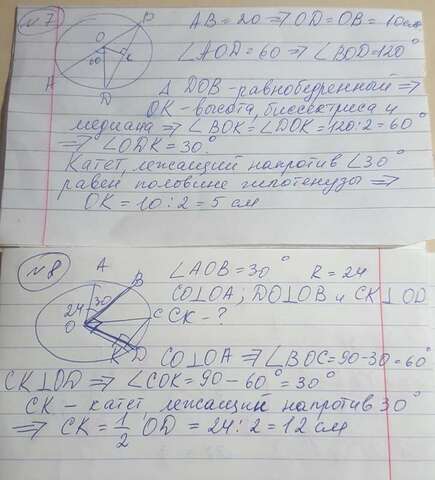 №7
B
O
60
K
A
D
AB = 20 => OD = OB = 10см
∠AOD = 60 => ∠BOD = 120°
Δ DOB - равнобедренный =>
OK - высота, биссектриса и
медиана => ∠BOK = ∠DOK = 120:2 = 60°
=> ∠ODK = 30°
Катет, лежащий напротив ∠30°
равен половине гипотенузы =>
OK = 10 : 2 = 5 см
№8
A
B
24
30
O
C
K
D
∠AOB = 30° R = 24
CO⊥OA; DO⊥OB и CK⊥OD
CK - ?
CO⊥OA => ∠BOC = 90-30 = 60°
CK⊥OD => ∠COK = 90 - 60° = 30°
CK - катет, лежащий напротив 30°
=> CK = 1/2 OD = 24 : 2 = 12 см